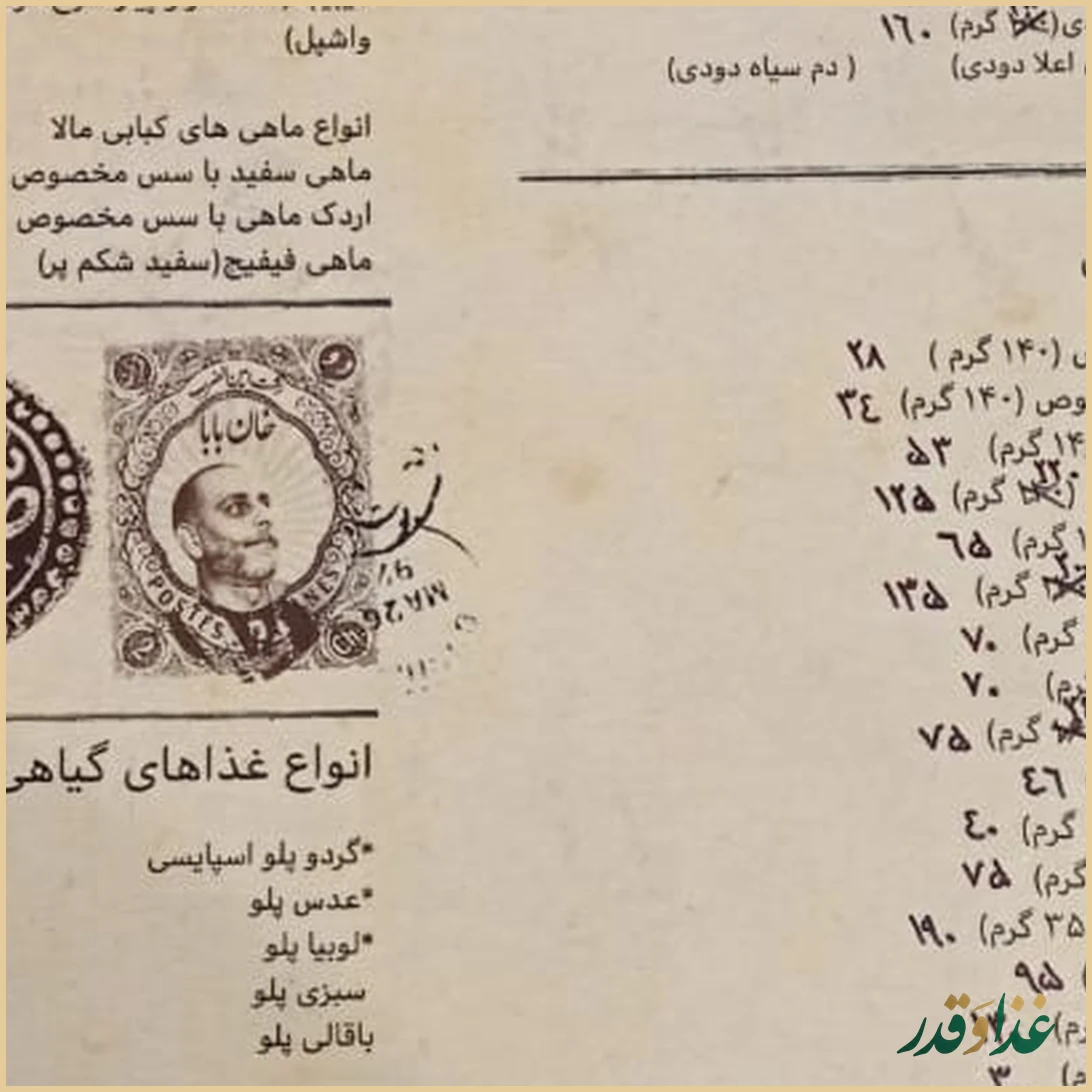 دی( گرم) ۱٦۰
اعلا دودی) ( دم سیاه دودی)
(۱۴۰ گرم ) ۲۸
وص (۱۴۰ گرم) ۳٤
گرم) ۵۳
۲۲۰ گرم) ۱۲۵
گرم) ٦۵
گرم) ۱۳۵
گرم) ۷۰
۷۰
گرم) ۷۵
٤٦
گرم) ٤۰
گرم) ۷۵
۳۵ گرم) ۱۹۰
۹۵
۳
واشپل)
انواع ماهی های کبابی مالا
ماهی سفید با سس مخصوص
اردک ماهی با سس مخصوص
ماهی فیفیج(سفید شکم پر)
خان بابا
POSTES
26 MAI
انواع غذاهای گیاهی
*گردو پلو اسپایسی
*عدس پلو
*لوبیا پلو
سبزی پلو
باقالی پلو
غذا و قدر